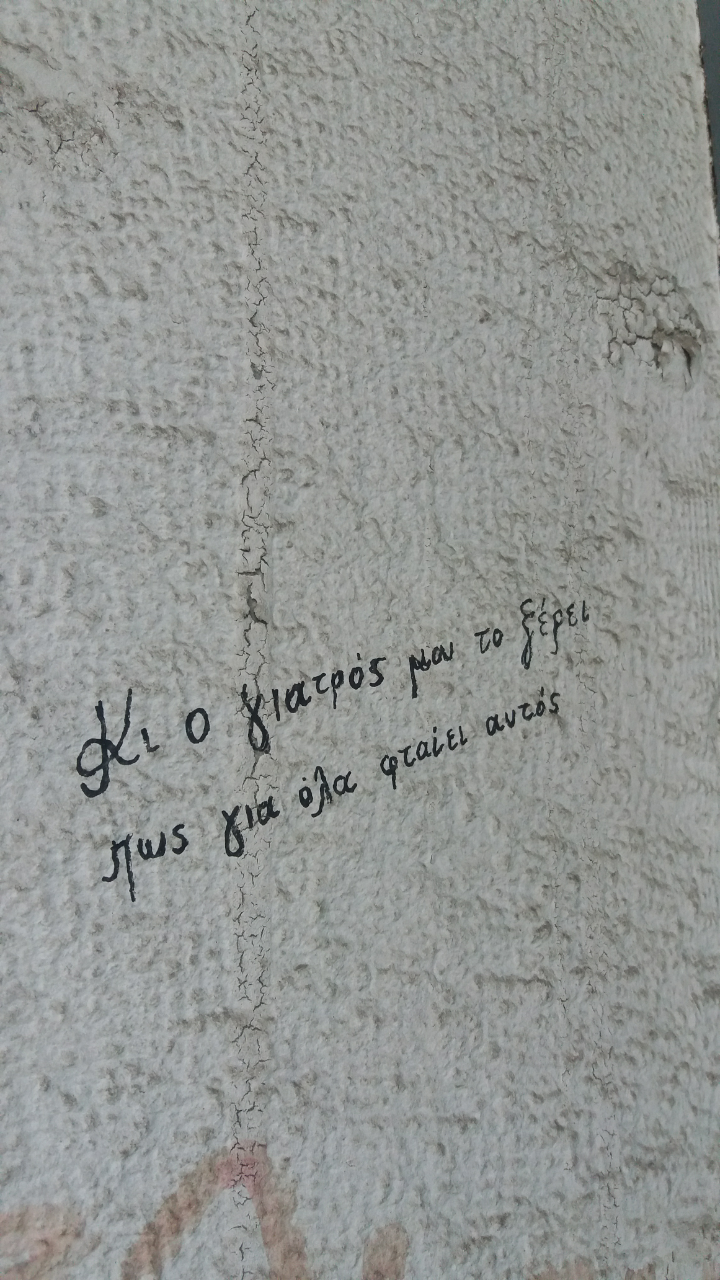 Κι ο γιατρός μου το ξέρει
πως για όλα φταίει αυτός